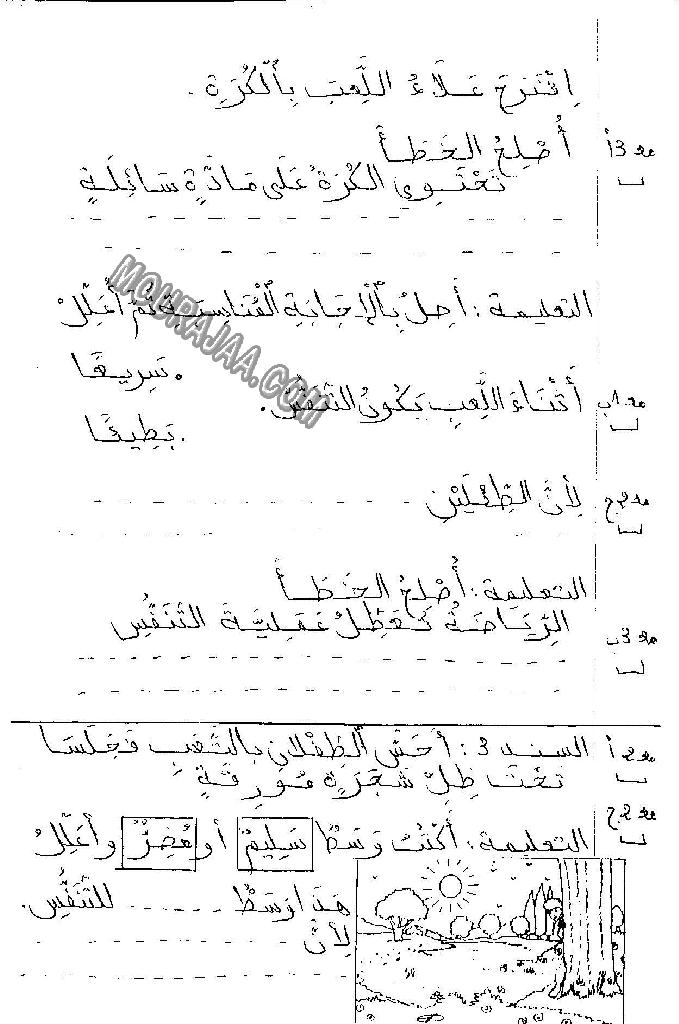 اِقْتَرَحَ عَلَاءُ اللَّعِبَ بِالْكُرَةِ.
مع 3أ أُصْلِحُ الخَطَأَ
تَحْتَوِي الكُرَةُ عَلَى مَادَّةٍ سَائِلَةٍ
التعليمة : أَصِلُ بِالْإِجَابَةِ الْمُنَاسِبَةِ ثُمَّ أُعَلِّلُ
. سَرِيعًا
مع 1ب أَثْنَاءَ اللَّعِبِ يَكُونُ التَّنَفُّسُ .
. بَطِيئًا
مع 2ج لِأَنَّ الطِّفْلَيْنِ
التعليمة : أُصْلِحُ الخَطَأَ
مع 3ب الرِّيَاضَةُ تُعَطِّلُ عَمَلِيَّةَ التَّنَفُّسِ
مع 2أ السند 3 : أَحَسَّ الطِّفْلَانِ بِالتَّعَبِ فَجَلَسَا
تَحْتَ ظِلِّ شَجَرَةٍ مُورِقَةٍ
مع 2ج التعليمة : أَكْتُبُ وَسَطٌ سَلِيمٌ أو مُضِرٌّ وأُعَلِّلُ
هَذَا وَسَطٌ للتَّنَفُّسِ.
لِأَنَّ
MOURAJAA.COM